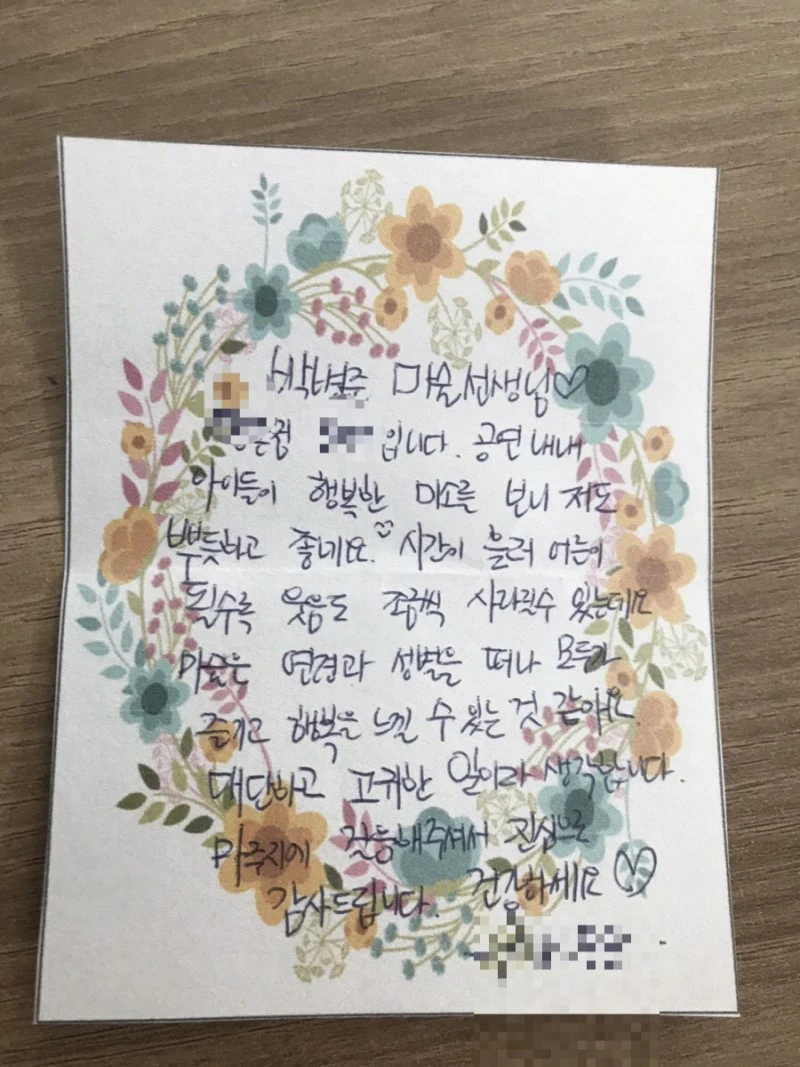 박병주 마술선생님♡
입니다. 공연 내내
아이들이 행복한 미소를 보니 저도
뿌듯하고 좋네요. 시간이 흘러 어른이
될수록 웃음도 조금씩 사라질수 있는데요
마술은 연령과 성별을 떠나 모두가
즐기고 행복을 느낄 수 있는 것 같아요.
대단하고 고귀한 일이라 생각합니다.
마주지에 걸음해주셔서 진심으로
감사드립니다. 건강하세요♡